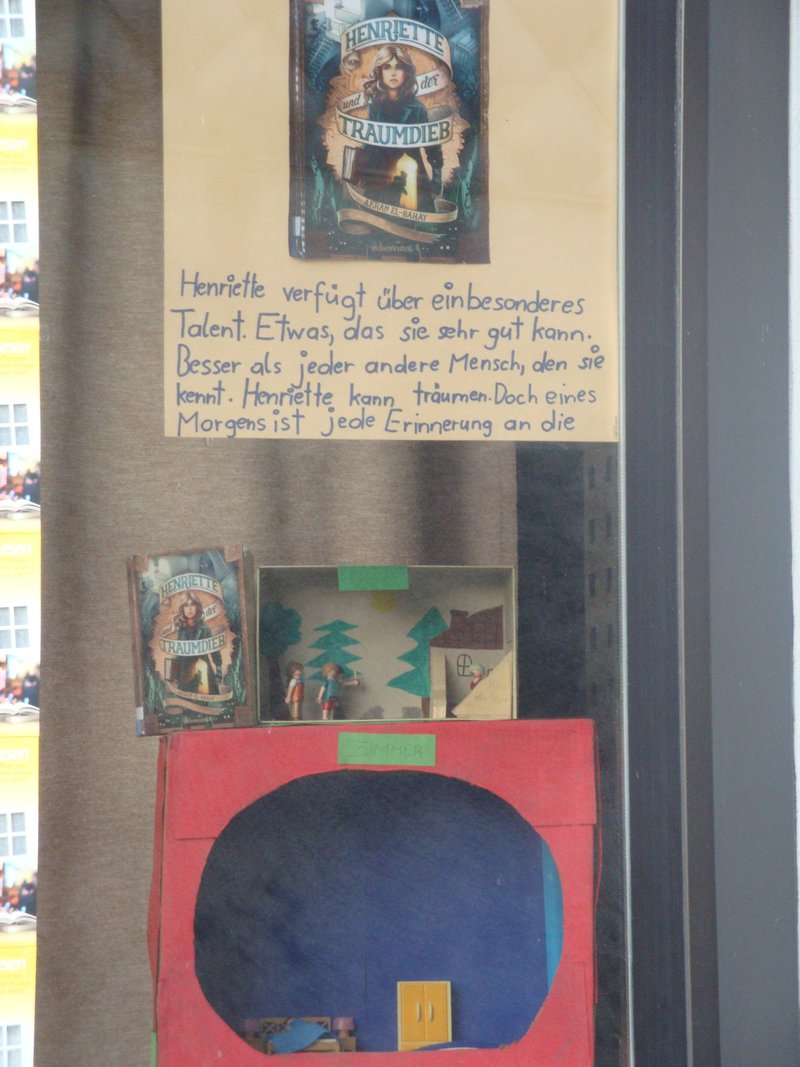 HENRIETTE
und der
TRAUMDIEB
AKRAM EL-BAHAY
ueberreuter
Henriette verfügt über einbesonderes
Talent. Etwas, das sie sehr gut kann.
Besser als jeder andere Mensch, den sie
kennt. Henriette kann träumen. Doch eines
Morgens ist jede Erinnerung an die
HENRIETTE
und der
TRAUMDIEB
AKRAM EL-BAHAY
ZIMMER